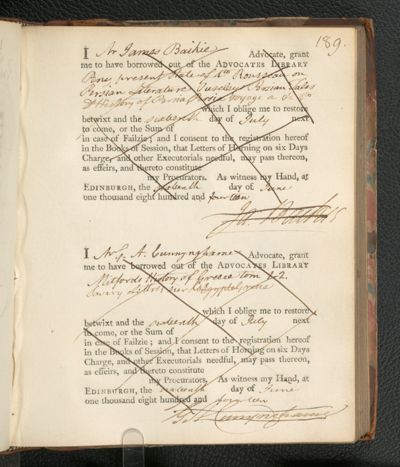 189.
I Mr James Baikie Advocate, grant
me to have borrowed out of the ADVOCATES LIBRARY
present State of Rousseau on
Persian Literature Ouseley's Persian Tales
History of Voyage a
which I oblige me to restore
betwixt and the sixteenth day of July next
to come, or the Sum of
in case of Failzie; and I consent to the registration hereof
in the Books of Session, that Letters of Horning on six Days
Charge, and other Executorials needful, may pass thereon,
as effeirs, and thereto constitute
my Procurators. As witness my Hand, at
EDINBURGH, the sixteenth day of June
one thousand eight hundred and fourteen
Ja. Baikie
I Mr A. Cunynghame Advocate, grant
me to have borrowed out of the ADVOCATES LIBRARY
Mitfords History of Greece tom 1-2.
Savary Lettres sur l'Egypte
which I oblige me to restore
betwixt and the sixteenth day of July next
to come, or the Sum of
in case of Failzie; and I consent to the registration hereof
in the Books of Session, that Letters of Horning on six Days
Charge, and other Executorials needful, may pass thereon,
as effeirs, and thereto constitute
my Procurators. As witness my Hand, at
EDINBURGH, the sixteenth day of June
one thousand eight hundred and fourteen
Cunynghame